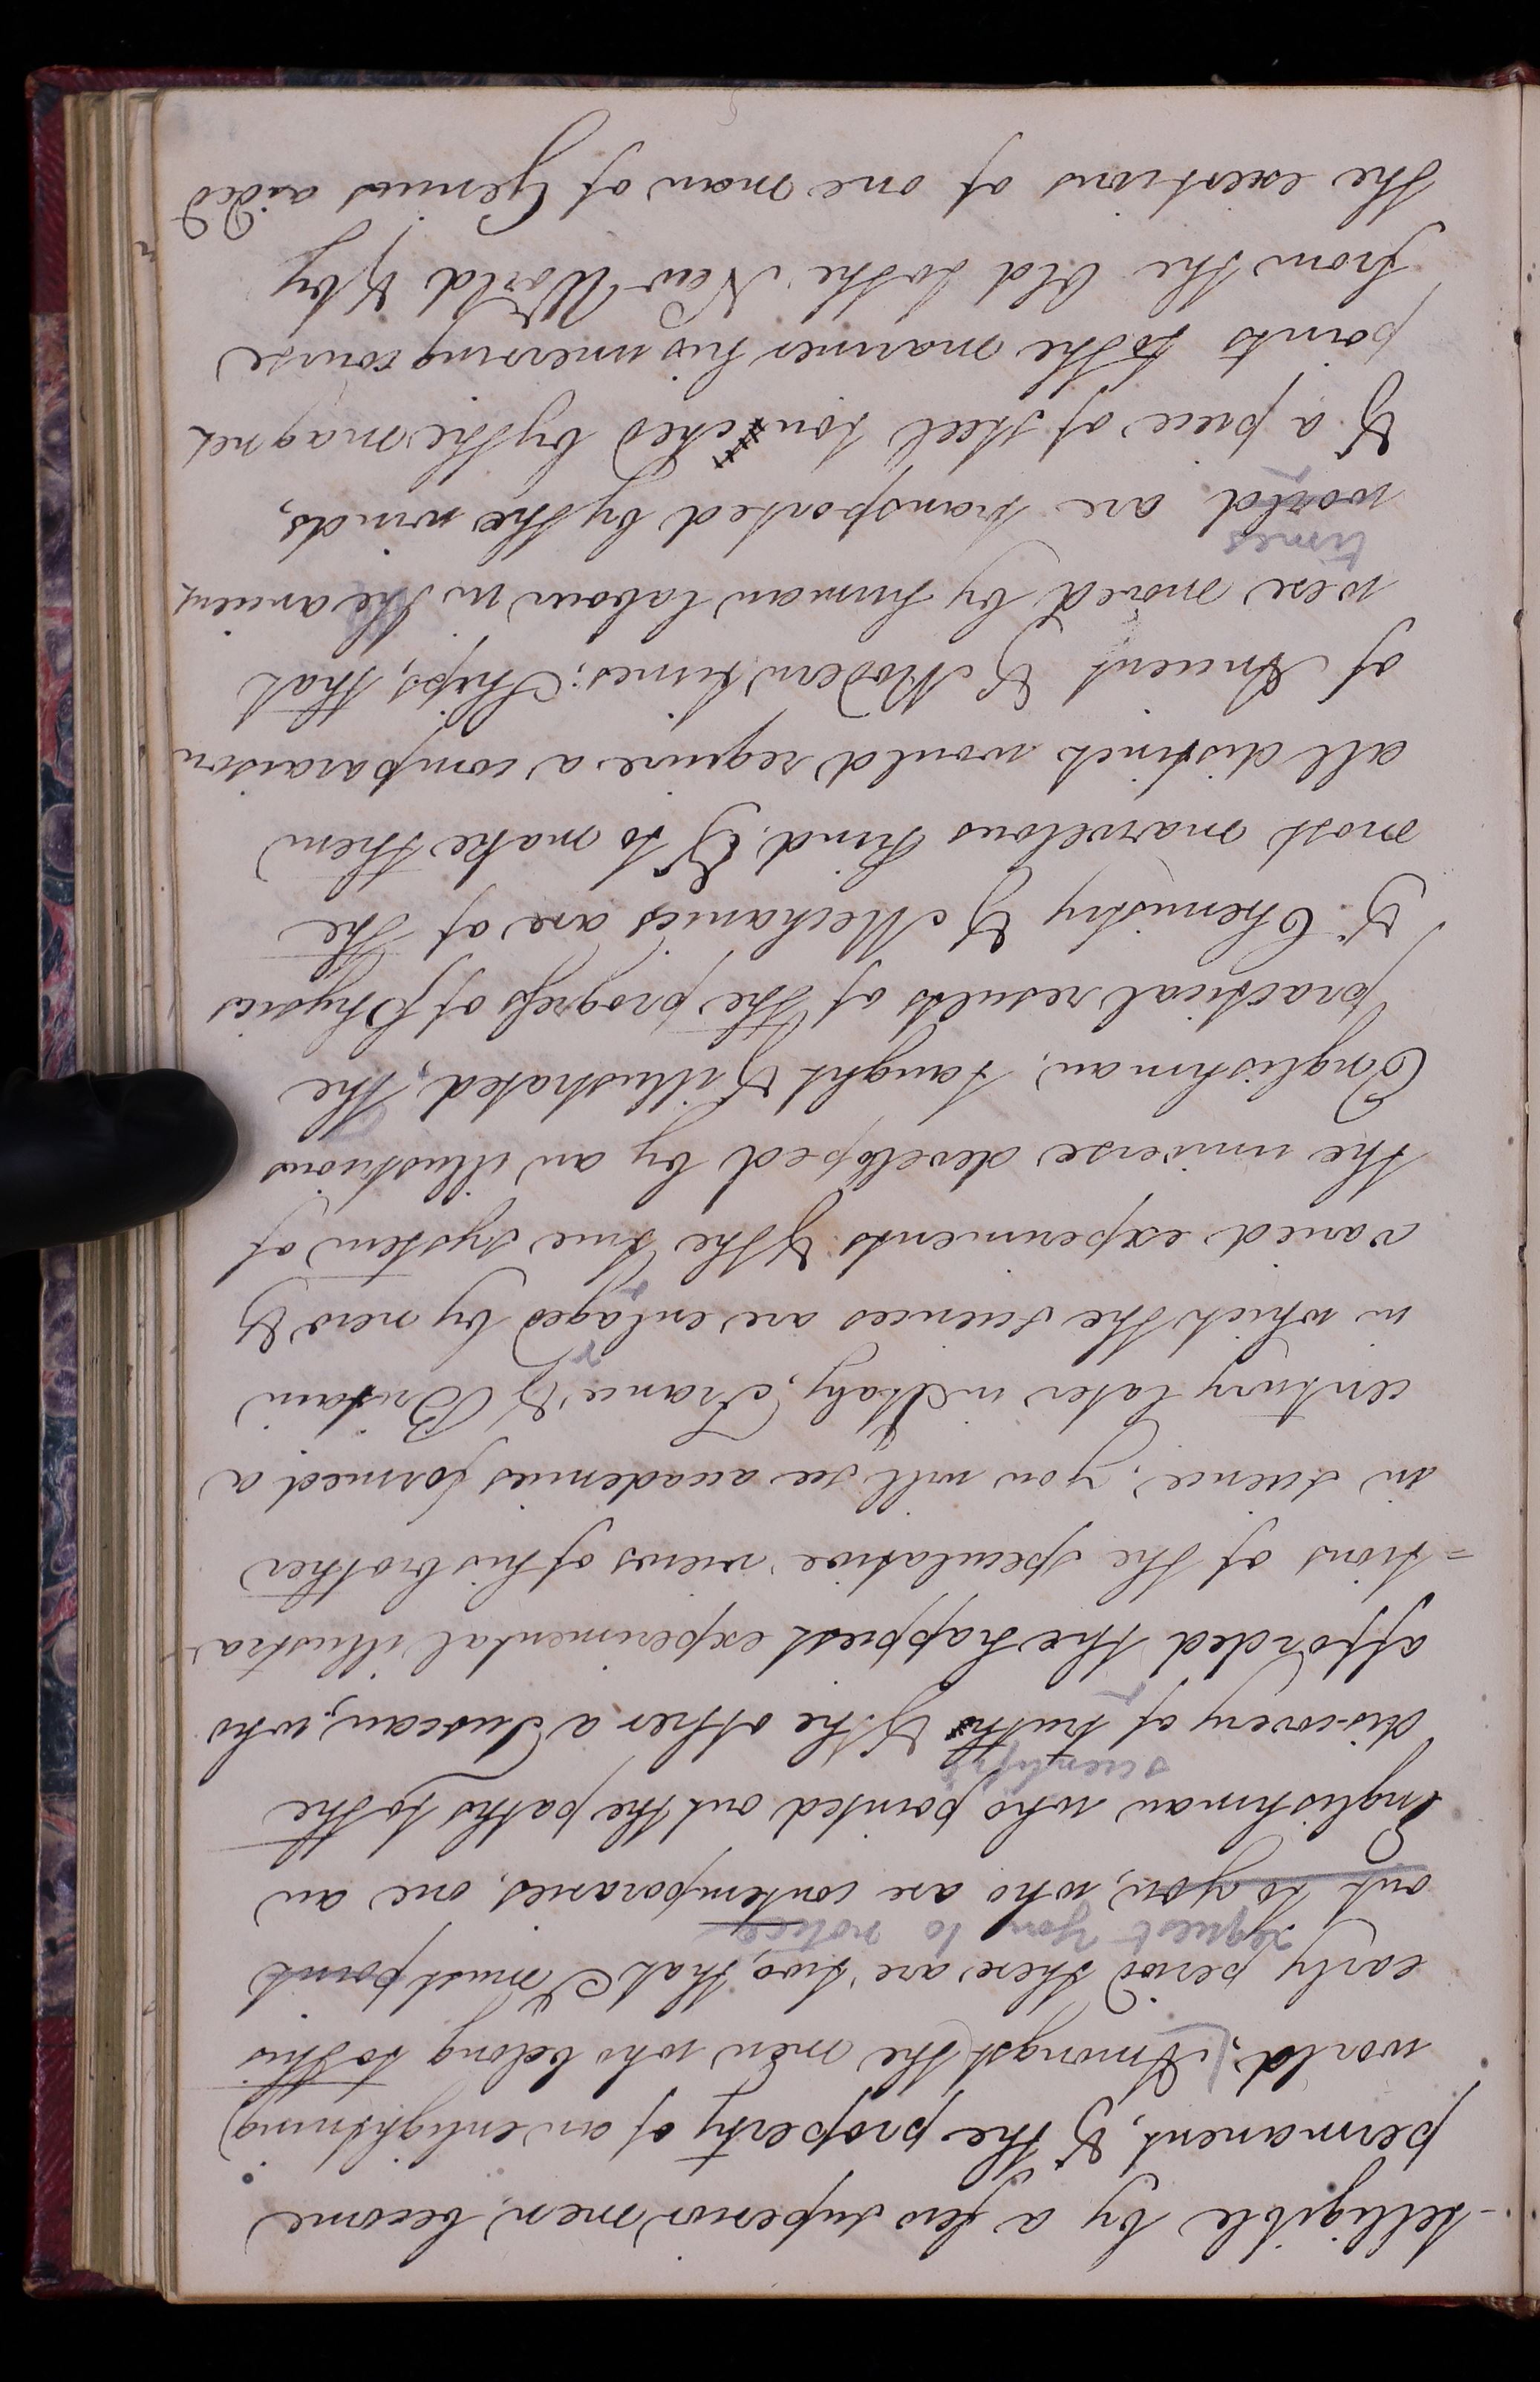 -telligible by a few superior men become
permanent, & the property of an enlightening
world; Amongst the men who belong to this
early period there are two, that I must point
request you to notice
out to you, who are contemporaries, one an
Englishman who pointed out the paths to the
scientific
discovery of truths & the other a Tuscan, who
afforded the happiest experimental illustra-
=tions of the speculative views of his brother
in science; you will see accademies formed a
century later in Italy, France & Britain
in which the sciences are enlaged by new &
r
varied experiments & the true system of
the universe developed by an illustrious
Englishman, taught & illustrated, the
practical results of the progress of Physics
& Chemistry & Mechanics are of the
most marvelous kind, & to make them
all distinct would require a comparaison
of Ancient & Modern times; Ships, that
were moved by human labour in the ancient
times
world are transported by the winds,
& a piece of steel touched by the magnet
points to the mariner his unerring course
from the Old to the New World & by
the exertions of one man of Genius aided